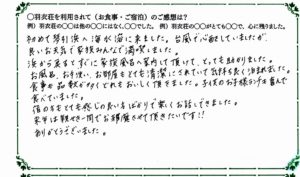 ○羽衣荘を利用されて（お食事・ご宿泊）のご感想は？
例）羽衣荘の○○は他の○○になく、○○でした。 例）羽衣荘の○○がとても○○で、心に残りました。
初めて琴引浜へ海水浴に来ました。台風で心配していましたが、
良いお天気で家族みんなで満喫しました。
浜から戻るとすぐに家族風呂へ案内して頂けて、とっても助かりました。
お風呂、お手洗い、お部屋もとても清潔にされていて気持ち良く泊まれました。
食事も品数が多くどれもおいしく頂きました。子供のお子様ランチも喜んで
食べていました。
宿の方もとても感じの良い方ばかりで楽しくお話しできました。
来年は
お邪魔させて頂きたいです!!
ありがとうございました。